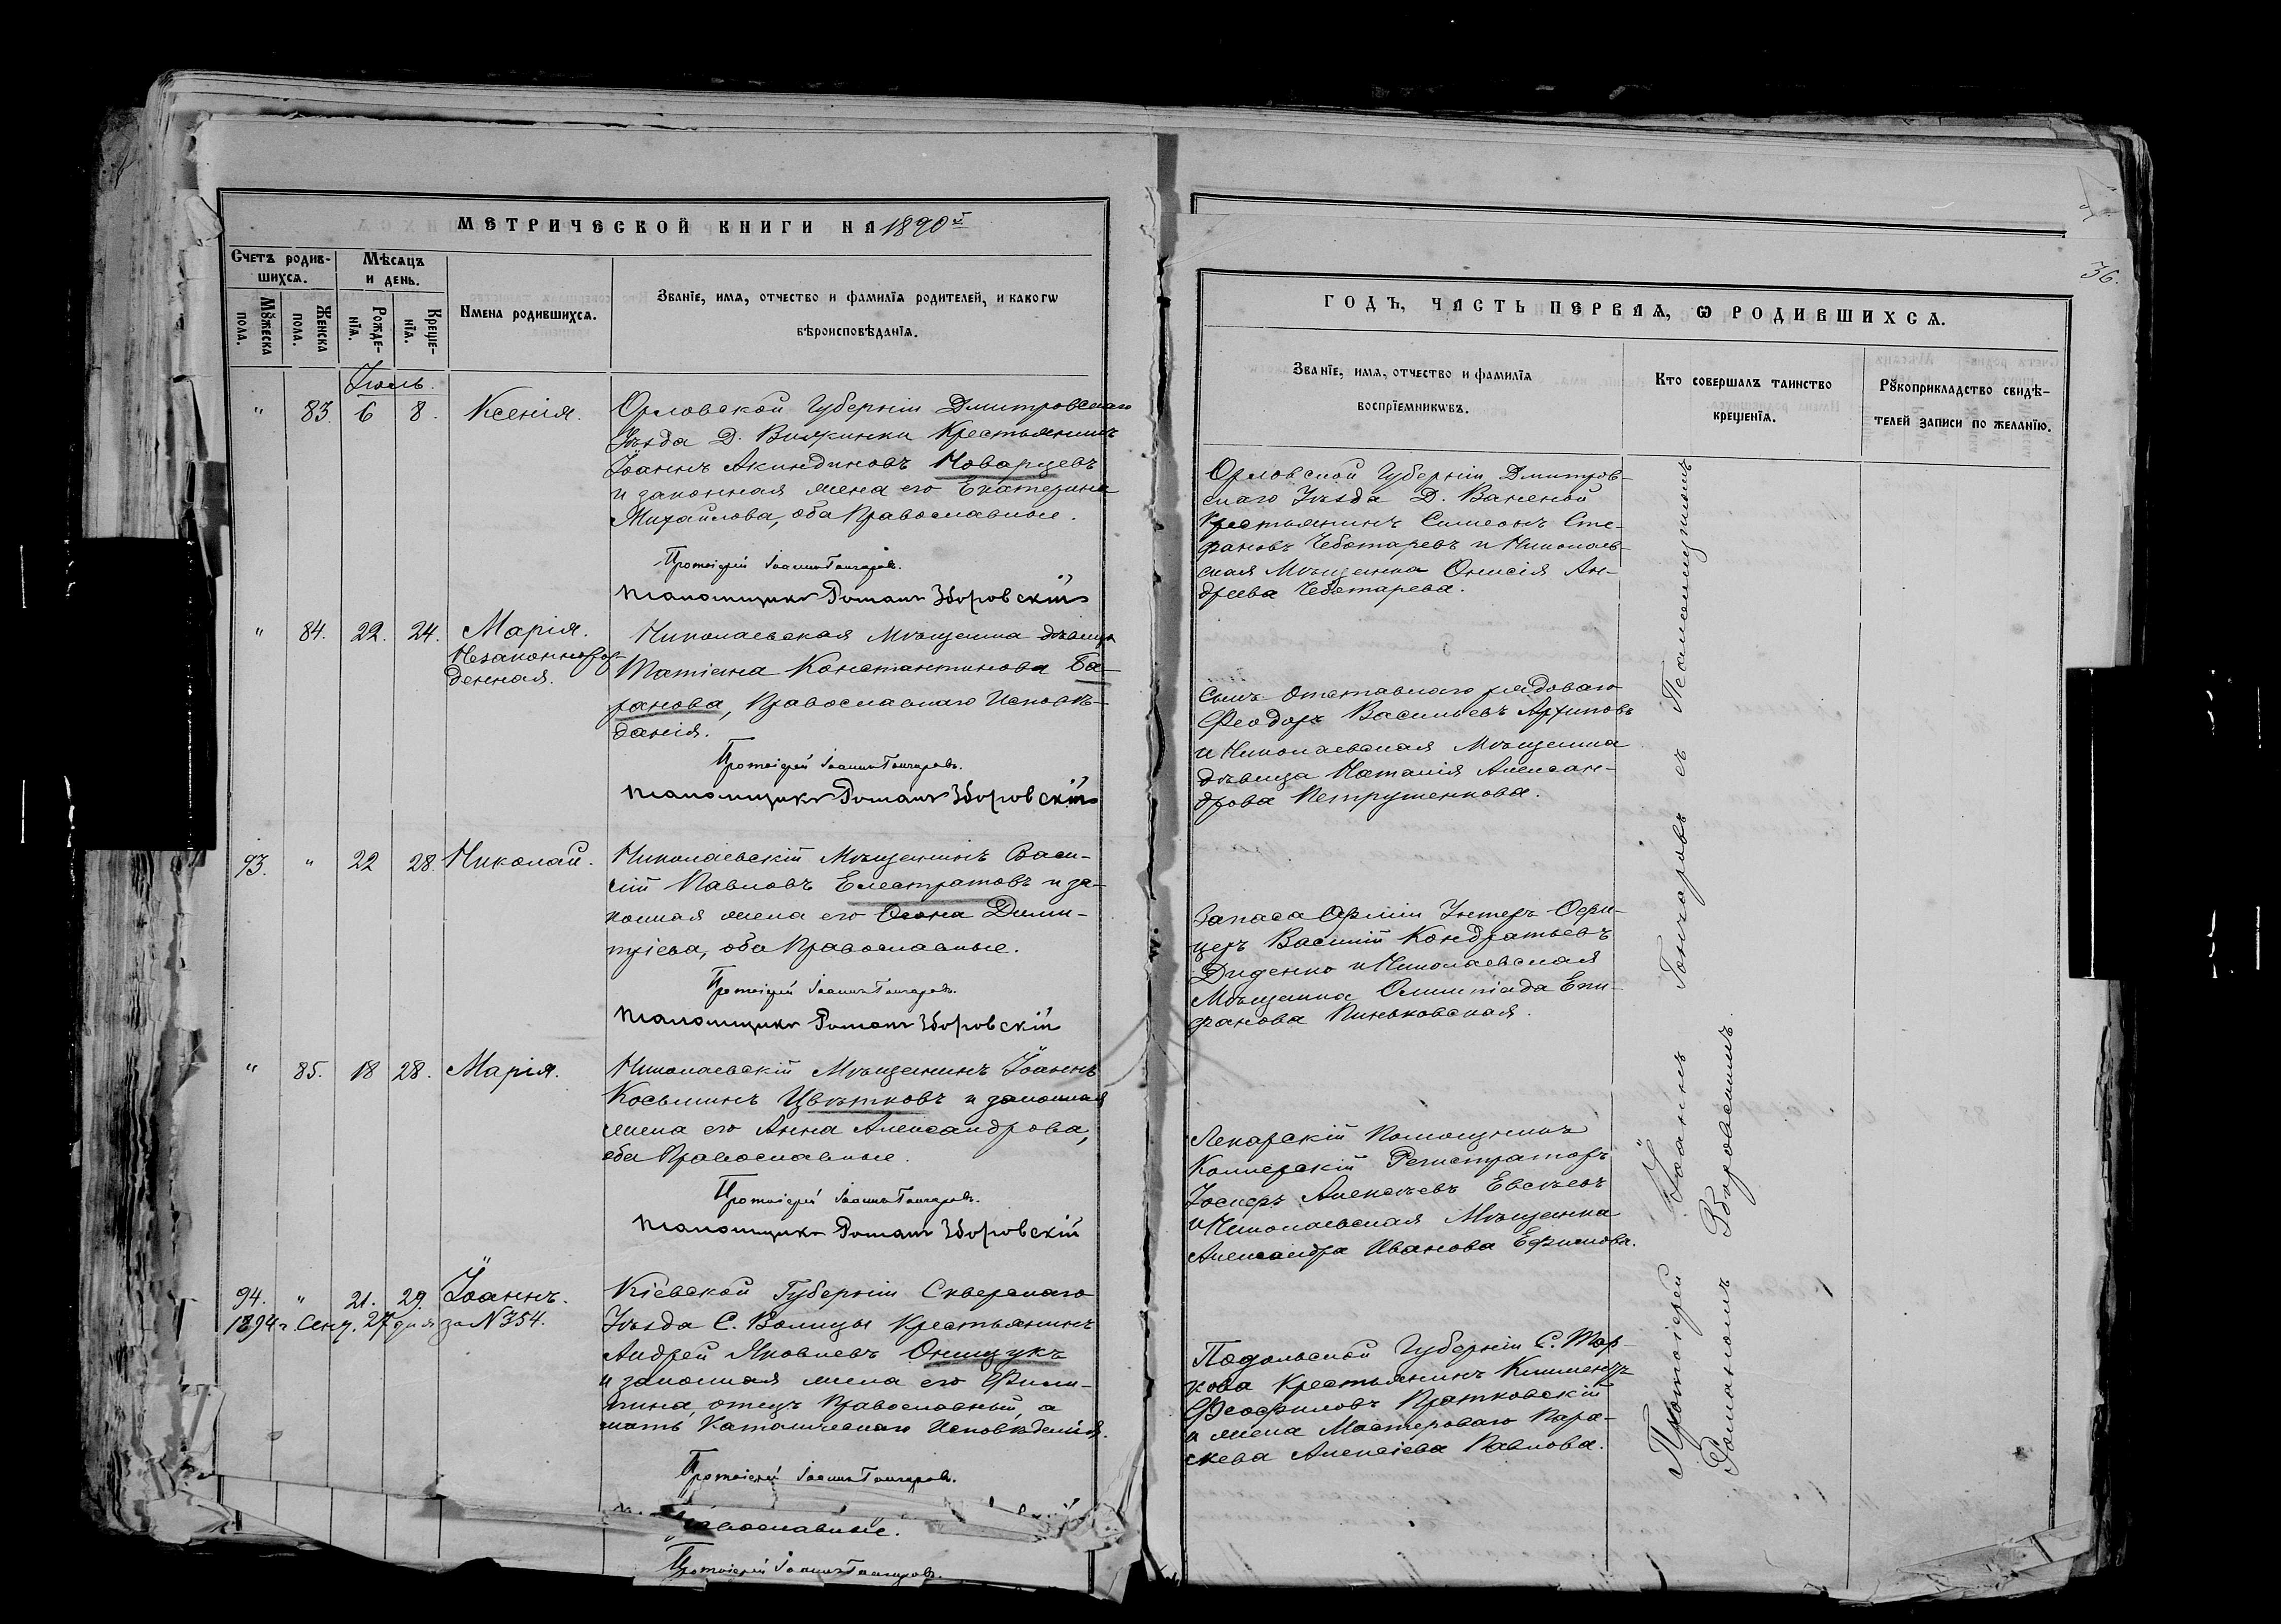 МЕТРИЧЕСКОЙ КНИГИ НА 1890й
Счетъ родив-
шихся.
Мѣсяцъ
и день.
Имена родившихся.
Званіе, имя, отчество и фамилія родителей, и какогѡ
вѣроисповѣданія.
Мꙋжеска
пола.
Женска
пола.
Рожде-
нія.
Креще-
нія.
Іюль.
" 83. 6 8. Ксенія.
Орловской Губерніи Дмитровскаго
Уѣзда Д. Крестьянинъ
Іоаннъ Акиндиновъ Новарцевъ
и законная жена его Екатерина
Михайлова, оба Православные.
Протоіерей Іоаннъ Гончаровъ.
псаломщикъ Романъ Зборовскій
" 84. 22. 24. Марія.
Незаконнорож-
денная.
Николаевская Мѣщанка дѣвица
Татіана Константинова Ба-
ранова, Православнаго Исповѣ-
данія.
Протоіерей Іоаннъ Гончаровъ.
псаломщикъ Романъ Зборовскій
93. " 22 28. Николай.
Николаевскій Мѣщанинъ Васи-
лій Павловъ Елестратовъ и за-
конная жена его Дими-
тріева, оба Православные.
Протоіерей Іоаннъ Гончаровъ.
псаломщикъ Романъ Зборовскій
" 85. 18 28. Марія.
Николаевскій Мѣщанинъ Іоаннъ
Косьминъ Цвѣтковъ и законная
жена его Анна Александрова,
оба Православные.
Протоіерей Іоаннъ Гончаровъ.
псаломщикъ Романъ Зборовскій
94. " 21. 29. Іоаннъ.
1894 г. Сент. 27 дня за № 354.
Кіевской Губерніи Сквирскаго
Уѣзда С. Волицы Крестьянинъ
Андрей Яковлевъ Онищукъ
и законная жена его Фили-
пина, отецъ Православный, а
мать Католическаго Исповѣданія.
Протоіерей Іоаннъ Гончаровъ.
Православные.
Протоіерей Іоаннъ Гончаровъ.
36.
ГОДЪ, ЧАСТЬ ПЕРВАЯ, Ѡ РОДИВШИХСЯ.
Званіе, имя, отчество и фамилія
воспріемникѡвъ.
Кто совершалъ таинство
крещенія.
Рꙋкоприкладство свидѣ-
телей записи по желанію.
Орловской Губерніи Дмитров-
скаго Уѣзда Д.
Крестьянинъ Симеонъ Сте-
фановъ Чеботаревъ и Николаев-
ская Мѣщанка Онисія Ан-
дреева Чеботарева.
Сынъ Отставнаго рядоваго
Феодоръ Васильевъ Архиповъ
и Николаевская Мѣщанка
дѣвица Наталія Алексан-
дрова Петрушенкова.
Запаса Арміи Унтеръ-Офи-
церъ Василій Кондратьевъ
Диденко и Николаевская
Мѣщанка Олимпіада Епи-
фанова Пиньковская.
Лекарскій Помощникъ
Коллежскій Регистраторъ
Іосифъ Алексѣевъ Евсѣевъ
и Николаевская Мѣщанка
Александра Иванова Ефимова.
Подольской Губерніи С. Мар-
кова Крестьянинъ Климентъ
Феофиловъ Кратковскій
и жена Мастероваго Пара-
скева Алексіева Павлова.
Протоіерей Іоаннъ Гончаровъ съ Псаломщикомъ
Романомъ Зборовскимъ.